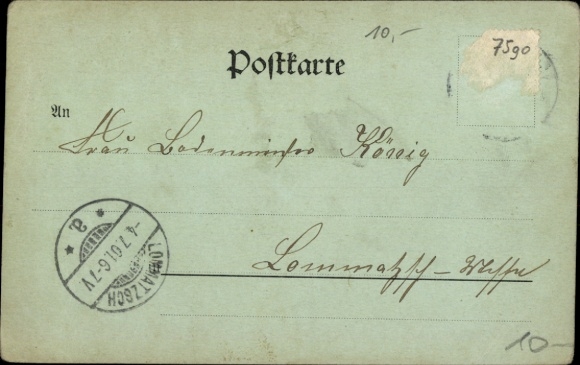 10,-
7590
Postkarte
An
Frau König
Lommatzsch
LOMMATZSCH
-4.7.01.6-7V
* a. *
10-